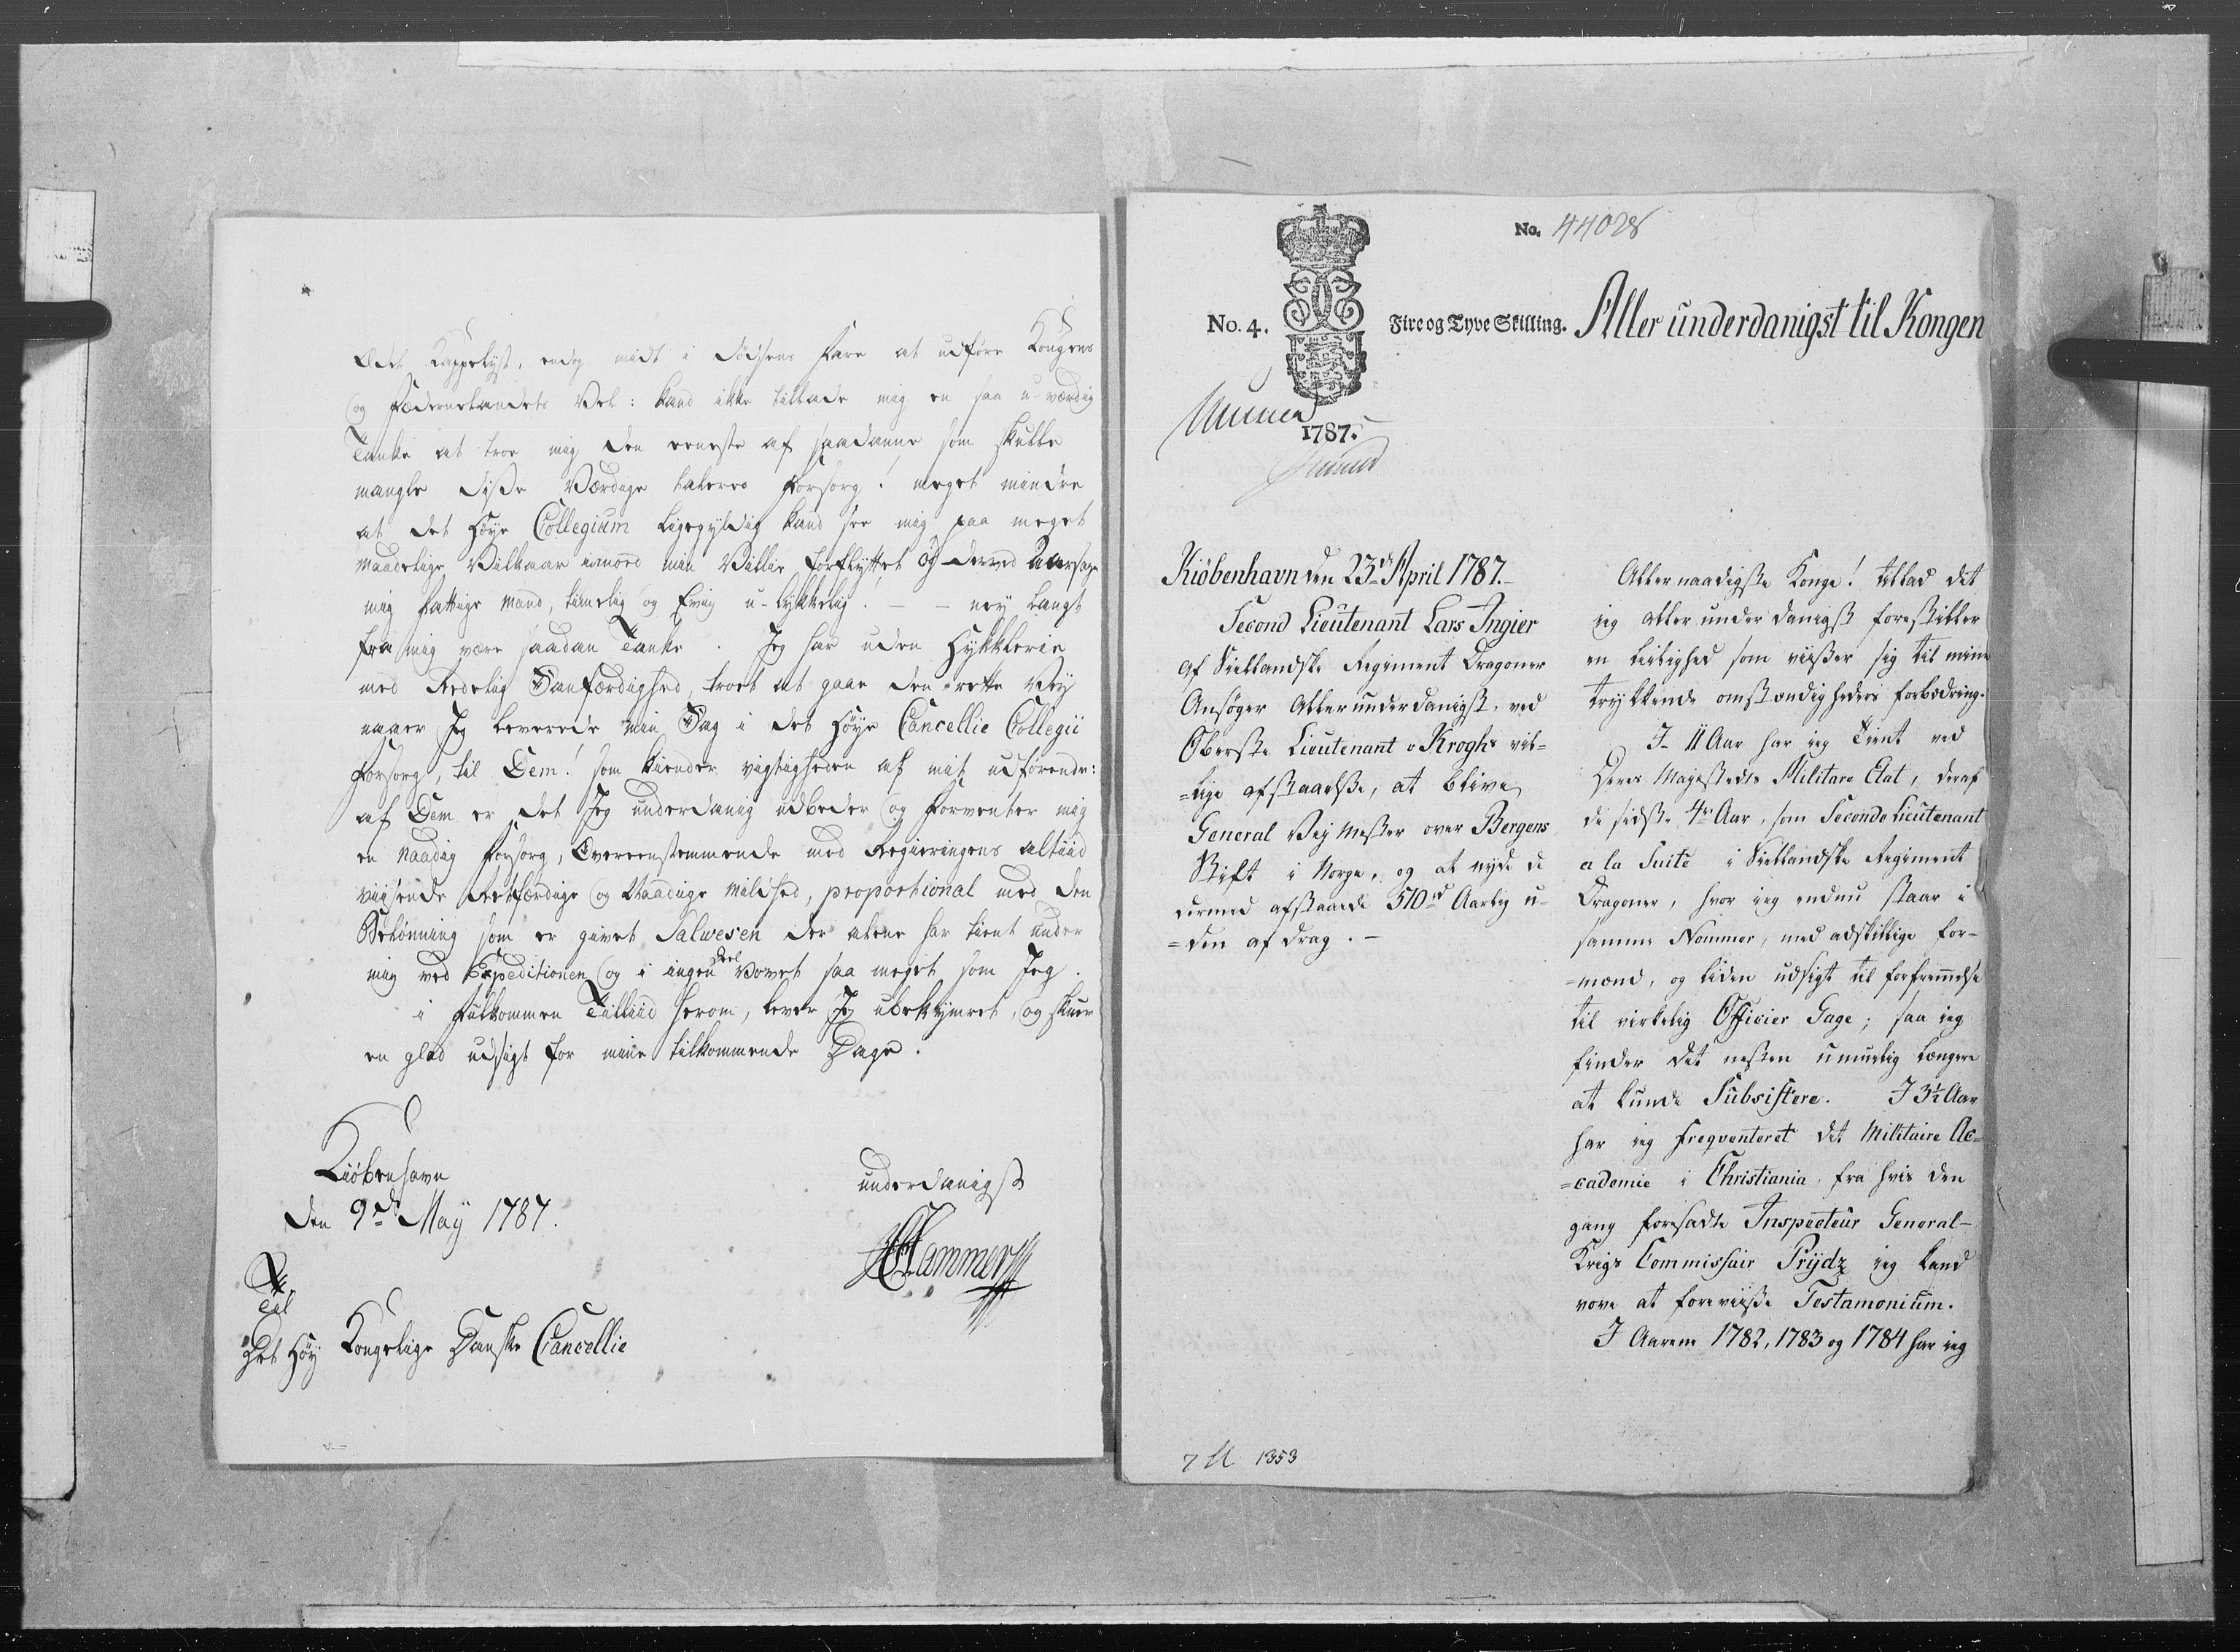 Ædel Kappelyst, endog midt i Dødsens Fare at udføre Kongens
og Fædernelandets Vel: kand ikke tillade mig en saa u-værdig
Tanke at troe mig den eeneste af saadanne som skulle
mangle disse Værdige talernes Forsorg! meget mindre
at det Høye Collegium ligegyldig kand see mig paa meget
maadelige Vilkaar imod min Villie forflyttet og derved Aarsage
mig fattige Mand, timelig og Evig u-lykkelig! — — ney langt
fra mig være saadan Tanke. Jeg har uden Hykklerie
med Redelig Sanfærdighed, troet at gaae den rette Vey
naar Jeg leverede min Sag i det Høye Cancellie Collegii
Forsorg, til Dem! som kiender vigtigheden af mit udførende:
af Dem er det Jeg underdanig udbeder og forventer mig
en Naadig Forsorg, Overeenstemmende med Regieringens altiid
viisende Retfærdige og Naadige mildhed, proportional med den
Belønning som er givet Salvesen der alene har tient under
mig ved Expeditionen og i ingen Deel Vovet saa meget som Jeg.
i Fulkommen Tilliid herom, lever Jeg ubekymret, og skuer
en glad udsigt for mine tilkommende Dage.
Kiøbenhavn
den 9de May 1787.
underdanigst
Hammer
Til
Det Høy Kongelige Danske Cancellie
No. 44028
No. 4.
Fire og Tyve Skilling.
Aller underdanigst til Kongen
1787.
Kiøbenhavn den 23de April 1787.
Second Lieutenant Lars Ingier
af Siellandske Regiment Dragoner
Ansøger Allerunderdanigst, ved
Oberste Lieutenant v Kroghs vil=
=lige afstaaelse, at blive
General Vej Mester over Bergens
Stift i Norge, og at nyde de
dermed afstaaede 510rd Aarlig u=
=den afdrag. —
Allernaadigste Konge! tillad det
ieg aller underdanigst forestiller
en leilighed som viisser sig til mine
trykkende omstændigheders forbedring.
I 11 Aar har ieg Tient ved
Deres Majestedts Militare Etat, deraf
de sidste 4re Aar, som Seconde Lieutenant
a la Suite i Siellandske Regiment
Dragoner, hvor ieg endnu staar i
samme Nommer, med adskillige for=
=mænd, og liden udsigt til forfremmelse
til virkelig Officier Gage; saa ieg
finder det nesten umuelig længere
at kunde Subsistere. I 3½ Aar
har ieg freqventeret det Militaire Ac=
=cademie i Christiania, fra hvis den
gang foresadte Inspecteur General-
Krigs Commissair Prydz ieg kand
vove at foreviisse Testamonium.
I Aarene 1782, 1783 og 1784 har ieg
7 M 1353